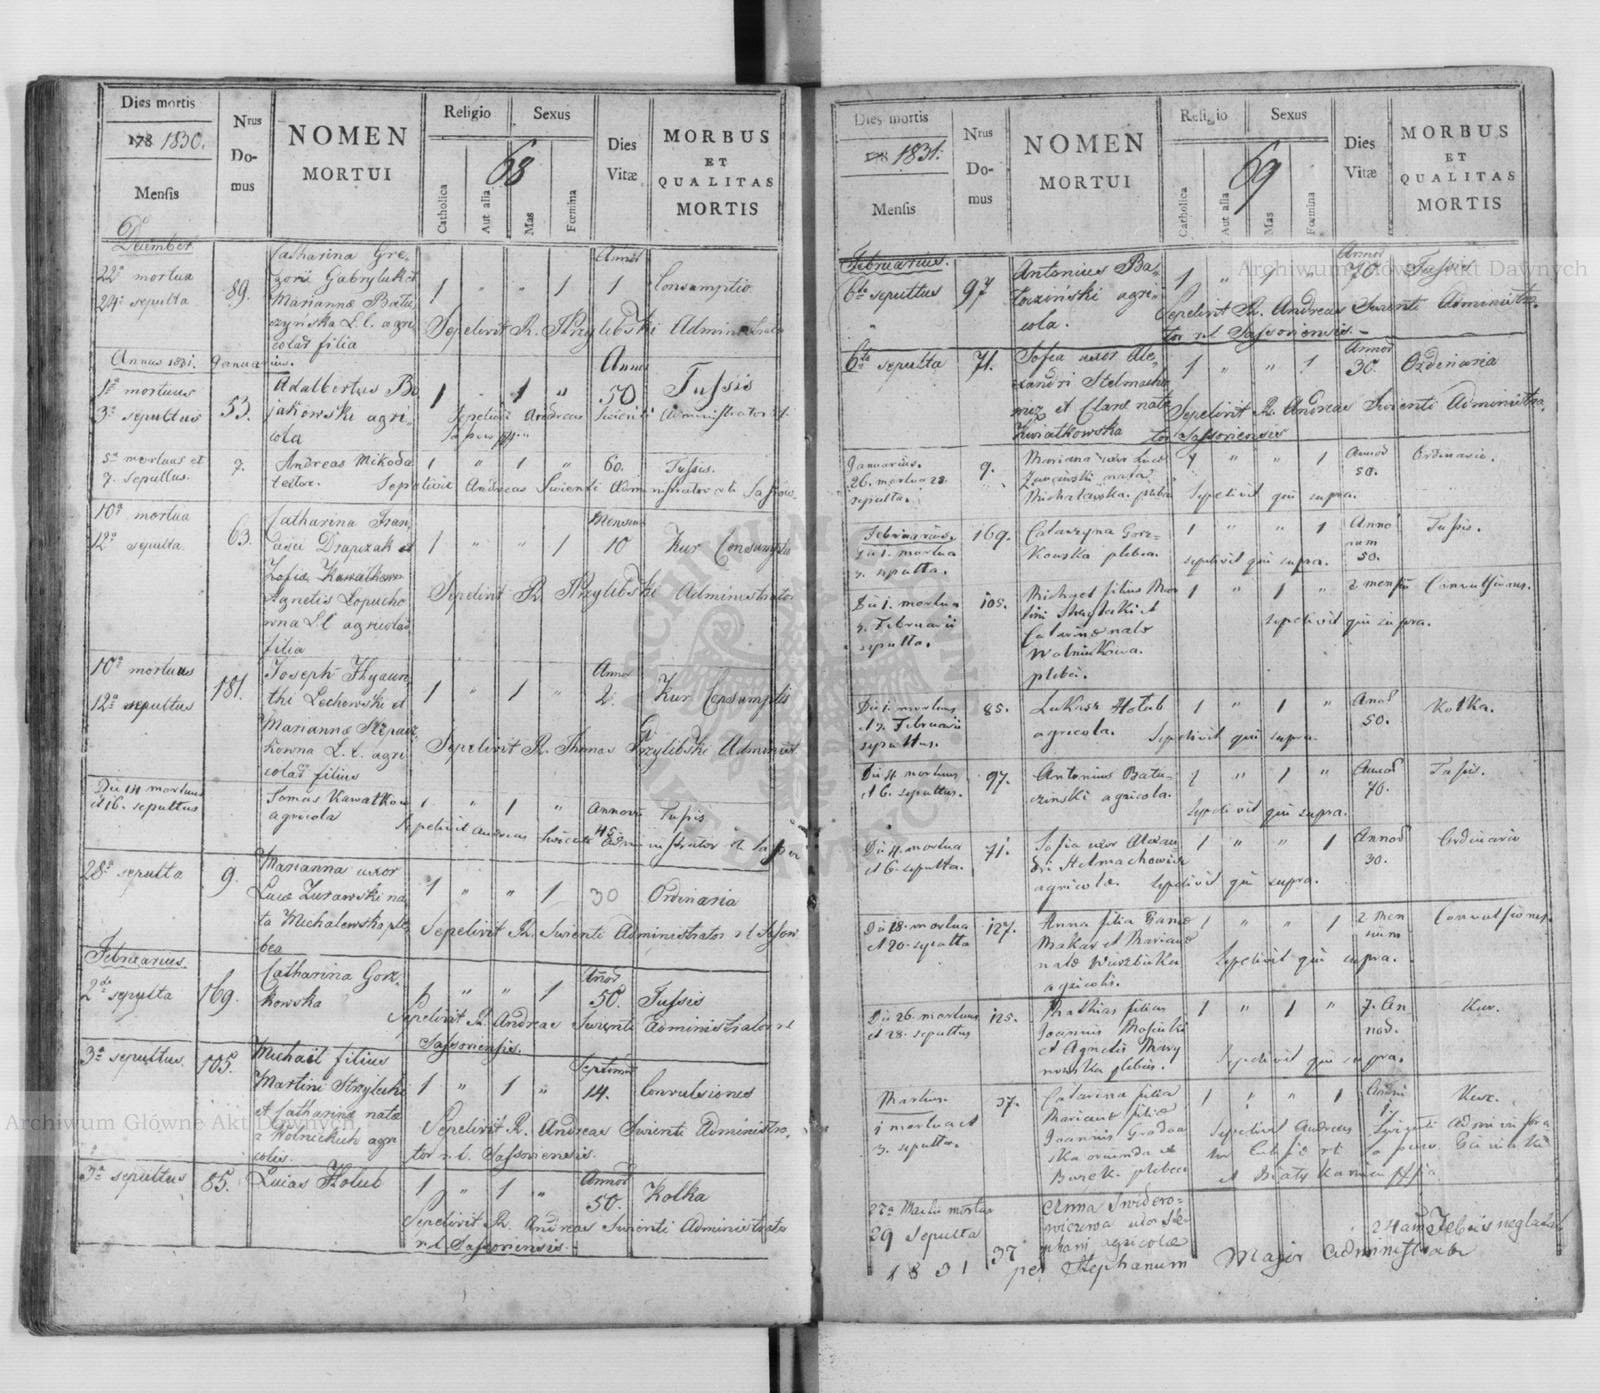 Dies mortis
178 1830.
Mensis
Nrus
Do-
mus
NOMEN
MORTUI
Religio
Sexus
68
Catholica
Aut alia
Mas
Fœmina
Dies
Vitæ
MORBUS
ET
QUALITAS
MORTIS
December
22a mortua
24a sepulta
89.
Catharina Gre-
gorii Gabryluk et
Mariannæ Batu
czyńska L. l. agri
colar filia
1 " " 1
Annus
1
Consumptio
Sepelivit R. Przylibski Administrator
Annus 1831. Januarius.
1a mortuus
3a sepultus
53.
Adalbertus Bo
jakowski agri-
cola
1 " 1 "
Annor
50
Tussis
Sepelivit Andreas Swienti Administrator
5a mortuus et
7. Sepultus.
7.
Andreas Mikoda
1 " 1 "
60.
Tussis.
Sepelivit Andreas Swienti Administrator r.l. Sassow.
10a mortua
12a sepulta.
63.
Catharina Fran
cisci Drapczak et
Zofiæ Kawałkow
Agnetis Łopucho
wna L.l. agricolar
filia
1 " " 1
Mensium
10
Kur Consumptio
Sepelivit R. Przylibski Administrator
10a mortuus
12a sepultus
181.
Joseph Hyacin
thi Lechowski et
Mariannæ
kowna L. l. agri
colar filius
1 " 1 "
Annor
2.
Kur Consumptis
Sepelivit R. Thomas Przylibski Administ
Die 14 mortuus
et 16. sepultus
Tomas Kawałkow
agricola
1 " 1 "
Annorum
45
Tussis
Sepelivit Andreas
28a sepulta
9.
Marianna uxor
Lucæ Zurawski na
ta Michalewska ple
bea
1 " " 1
30
Ordinaria
Sepelivit R. Swienti Administrator r.l. Sassow
Februarius.
2da sepulta
169.
Catharina Gorz-
kowska
1 " " 1
Annor
50.
Tussis
Sepelivit R. Andreas Swienti Administrator r.l
Sassoviensis.
3a sepultus.
105.
Michael filius
Martini Strzylecki
et Catharinæ natæ
a Wolnickich agri
colis.
1 " 1 "
Septiman
14.
Convulsiones
Sepelivit R. Andreas Swienti Administra-
tor r.l. Sassoviensis.
3a sepultus
85.
Lucas Holub
1 " 1 "
Annor
50.
Kolka
Sepelivit R. Andreas Swienti Administrato
r.l. Sassoviensis.
Dies mortis
178 1831.
Mensis
Nrus
Do-
mus
NOMEN
MORTUI
Religio
Sexus
69
Catholica
Aut alia
Mas
Fœmina
Dies
Vitæ
MORBUS
ET
QUALITAS
MORTIS
Februarius.
6ta sepultus
97
Antonius Ba-
toziński agri-
cola.
1 " 1 "
Annor
70.
Tussis
Sepelivit R. Andreas Swienti Administra-
tor r.l. Sassoviensis.
6ta sepulta
71.
Sofia uxor Ale-
xandri Stelmacho
wicz et Claræ nata
Kwiatkowska
1 " " 1
Annor
30.
Ordinaria
Sepelivit R. Andreas Swienti Administra-
tor Sassoviensis
Januarius.
26. mortua 28.
sepulta.
9.
Mariana uxor Lucæ
Zurawski nata
Michalewska. pleba
1 " " 1
Annor
50.
Ordinaria.
Sepelivit qui supra.
Februarius.
Die 1. mortua
3. sepulta.
169.
Catarzyna Gorz-
kowska plebea.
1 " " 1
Anno
rum
50.
Tussis.
sepelivit qui supra.
Die 1. mortua
3. Februarii
sepulta.
105.
Michael filius Mar
tini Strzylecki et
Catarinæ natæ
Wolnickiwa.
plebei.
1 " 1 "
2 mensiu
Convulsiones.
sepelivit qui supra.
Die 1. mortuus
et 3. Februarii
sepultus.
85.
Lukasz Hołub
agricola.
1 " 1 "
Annor
50.
Kolka.
Sepelivit qui supra.
Die 4. mortuus
et 6. sepultus.
97.
Antonius Batu-
czinski agricola.
1 " 1 "
Annor
70.
Tussis.
Sepelivit qui supra.
Die 4. mortua
et 6. sepulta.
71.
Sofia uxor Alexan
dri Stelmachowicz
agricolæ.
1 " " 1
Annor
30.
Ordinaria
sepelivit qui supra.
Die 18. mortua
et 20. sepulta
127.
Anna filia
Makar et Marianæ
natæ Wierzbicka
agricolis.
1 " " 1
2 Men
sium
Convulsiones.
Sepelivit qui supra.
Die 26. mortuus
et 28. sepultus
125.
Mathias filius
Joannis
et Agnetis Mary
nowska plebeis.
1 " 1 "
7. An
nor.
Kur.
Sepelivit qui supra.
Martius.
1 mortua et
3. sepulta.
37.
Catarina filia
Marianæ filiæ
Joannis Grodow
ska oriunda et
Burek plebea
1 " " 1
Anni
1.
Kur.
Sepelivit Andreas Swienti Administra
tor
et Białykamień
27a Martii mortua
29 sepulta
1831
37
Anna Swidero-
wiczowa uxor Ste-
phani agricolæ
per Stephanum Major Administrator
Archiwum Główne Akt Dawnych
Archiwum Główne Akt Dawnych